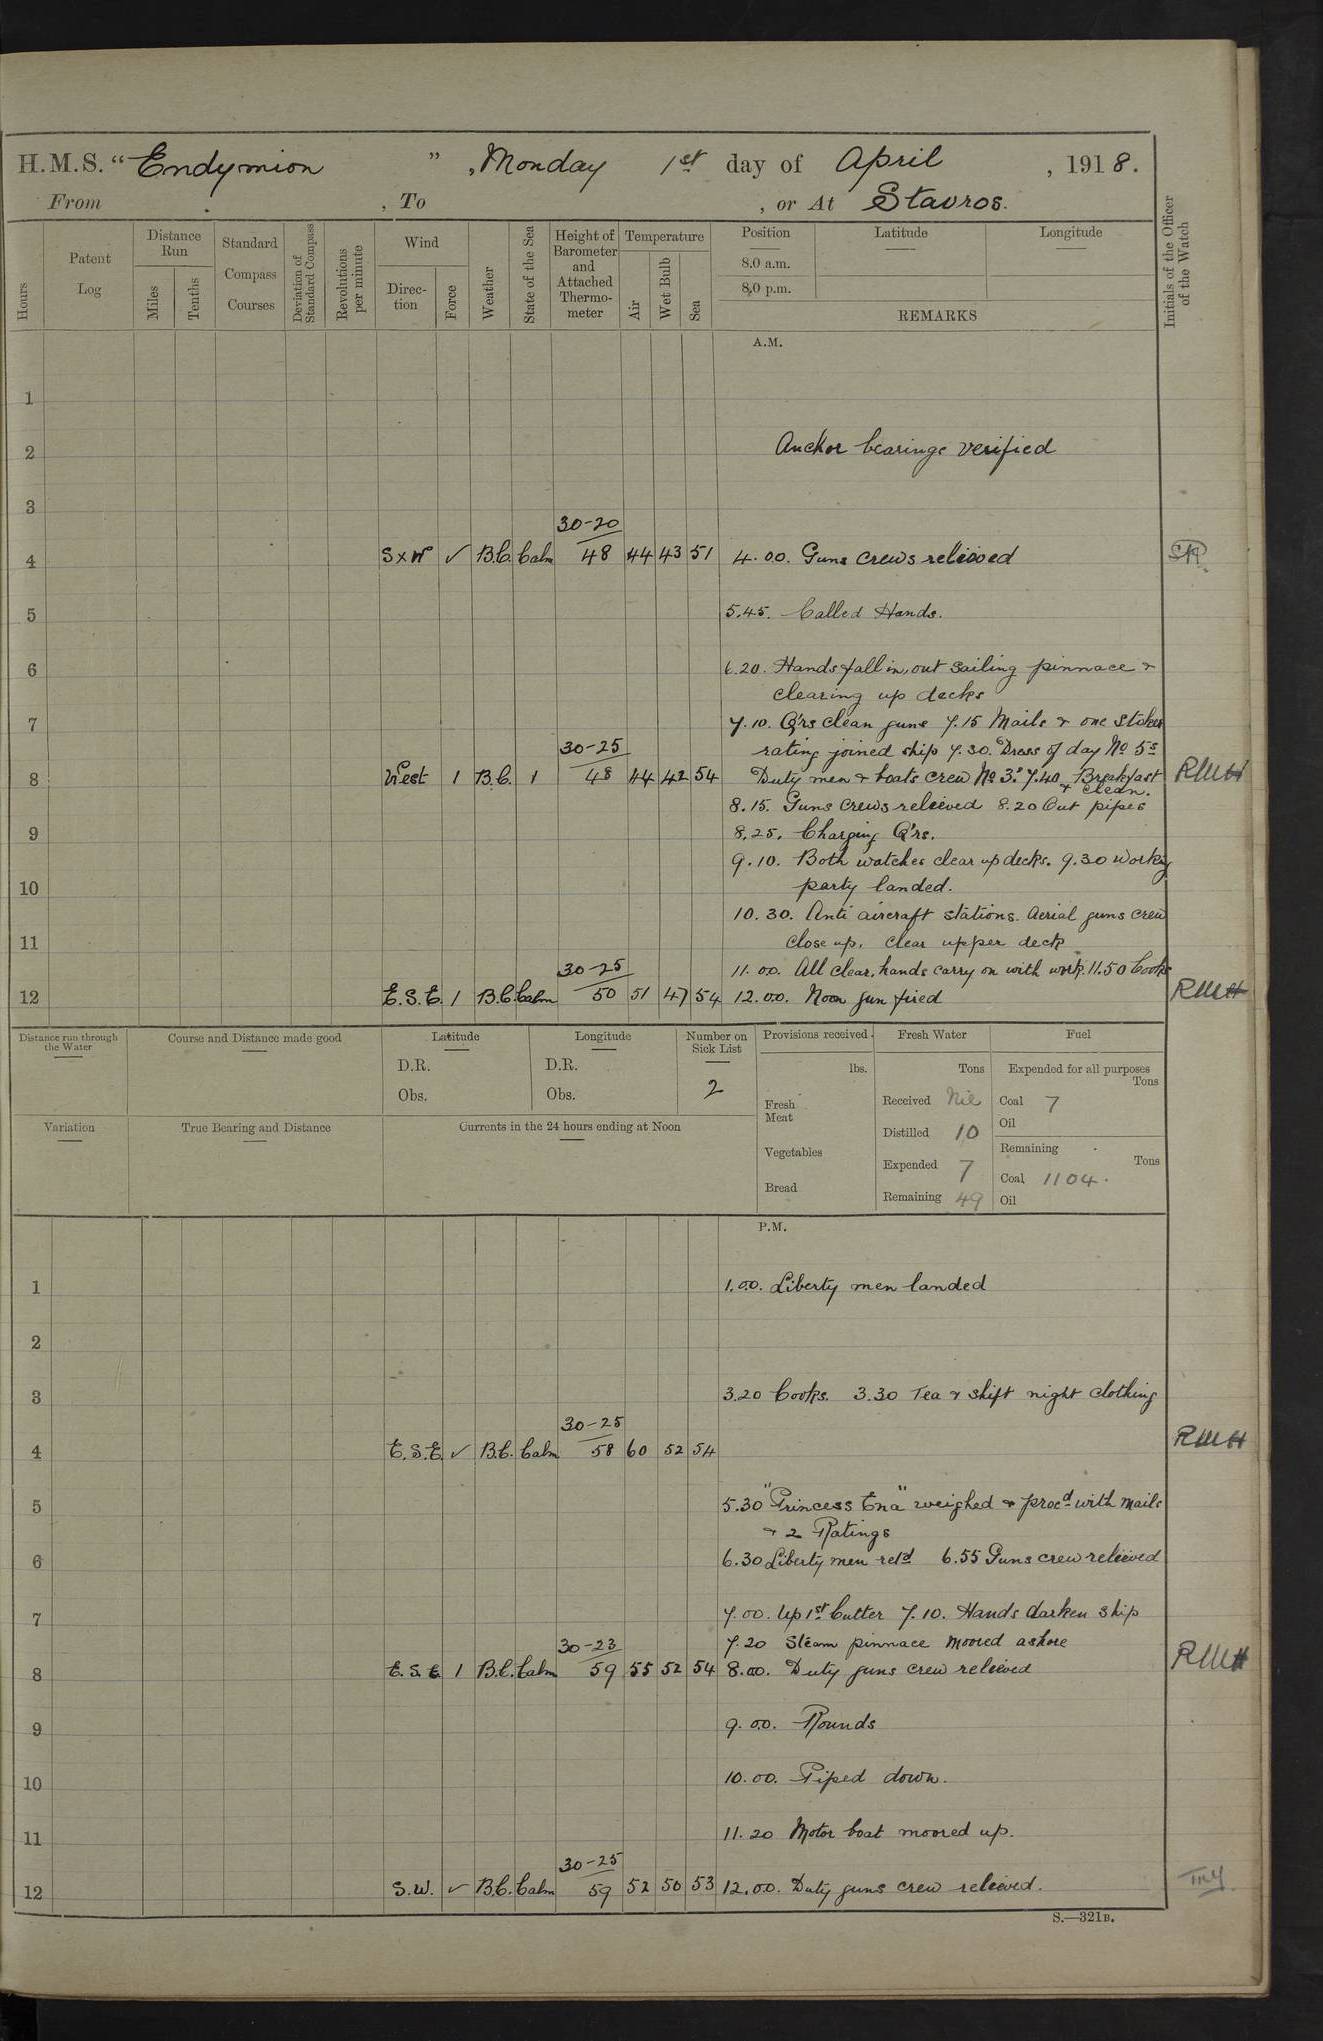 H.M.S. "Endymion", Monday 1st day of April, 1918.
From , To , or At Stavros.
Hours
Patent Log
Distance Run
Miles
Tenths
Standard Compass Courses
Deviation of Standard Compass
Revolutions per minute
Wind
Direction
Force
Weather
State of the Sea
Height of Barometer and Attached Thermometer
Temperature
Air
Wet Bulb
Sea
Position
Latitude
Longitude
8.0 a.m.
8.0 p.m.
REMARKS
Initials of the Officer of the Watch
A.M.
1
2 Anchor bearings verified
3
30-20
4 S x W ✓ B.C. Calm 48 44 43 51 4.00. Guns crews relieved
5 5.45. Called Hands.
6 6.20. Hands fall in, out sailing pinnace &
clearing up decks
7 7.10. Q'rs clean guns 7.15 Mails & one Stoker
30-25 rating joined ship 7.30. Dress of day No 5s
8 West 1 B.C. 1 48 44 42 54 Duty men & boats crew No 3s 7.40 Breakfast RMH
& clean.
8.15. Guns crews relieved 8.20 Out pipes
9 8.25. Charging Q'rs.
9.10. Both watches clear up decks. 9.30 Working
10 party landed.
10.30. Anti aircraft stations. Aerial guns crew
11 close up. clear upper deck
30-25 11.00. All clear, hands carry on with work. 11.50 Cooks
12 E.S.E. 1 B.C. Calm 50 51 47 54 12.00. Noon gun fired RMH
Distance run through the Water
Course and Distance made good
Latitude
D.R.
Obs.
Longitude
D.R.
Obs.
Number on Sick List
2
Provisions received.
lbs.
Fresh Meat
Vegetables
Bread
Fresh Water
Tons
Received Nil
Distilled 10
Expended 7
Remaining 49
Fuel
Expended for all purposes
Tons
Coal 7
Oil
Remaining
Tons
Coal 1104.
Oil
Variation
True Bearing and Distance
Currents in the 24 hours ending at Noon
P.M.
1 1.00. Liberty men landed
2
3 3.20 Cooks. 3.30 Tea & shift night clothing
30-25
4 E.S.E. ✓ B.C. Calm 58 60 52 54 RMH
5 5.30 "Princess Ena" weighed & procd with mails
& 2 Ratings
6 6.30 Liberty men retd 6.55 Guns crew relieved
7 7.00. Up 1st Cutter 7.10. Hands darken ship
30-23 7.20 Steam pinnace moored ashore
8 E.S.E. 1 B.C. Calm 59 55 52 54 8.00. Duty guns crew relieved RMH
9 9.00. Rounds
10 10.00. Piped down.
11 11.20 Motor boat moored up.
30-25
12 S.W. ✓ B.C. Calm 59 52 50 53 12.00. Duty guns crew relieved.
S.—321B.